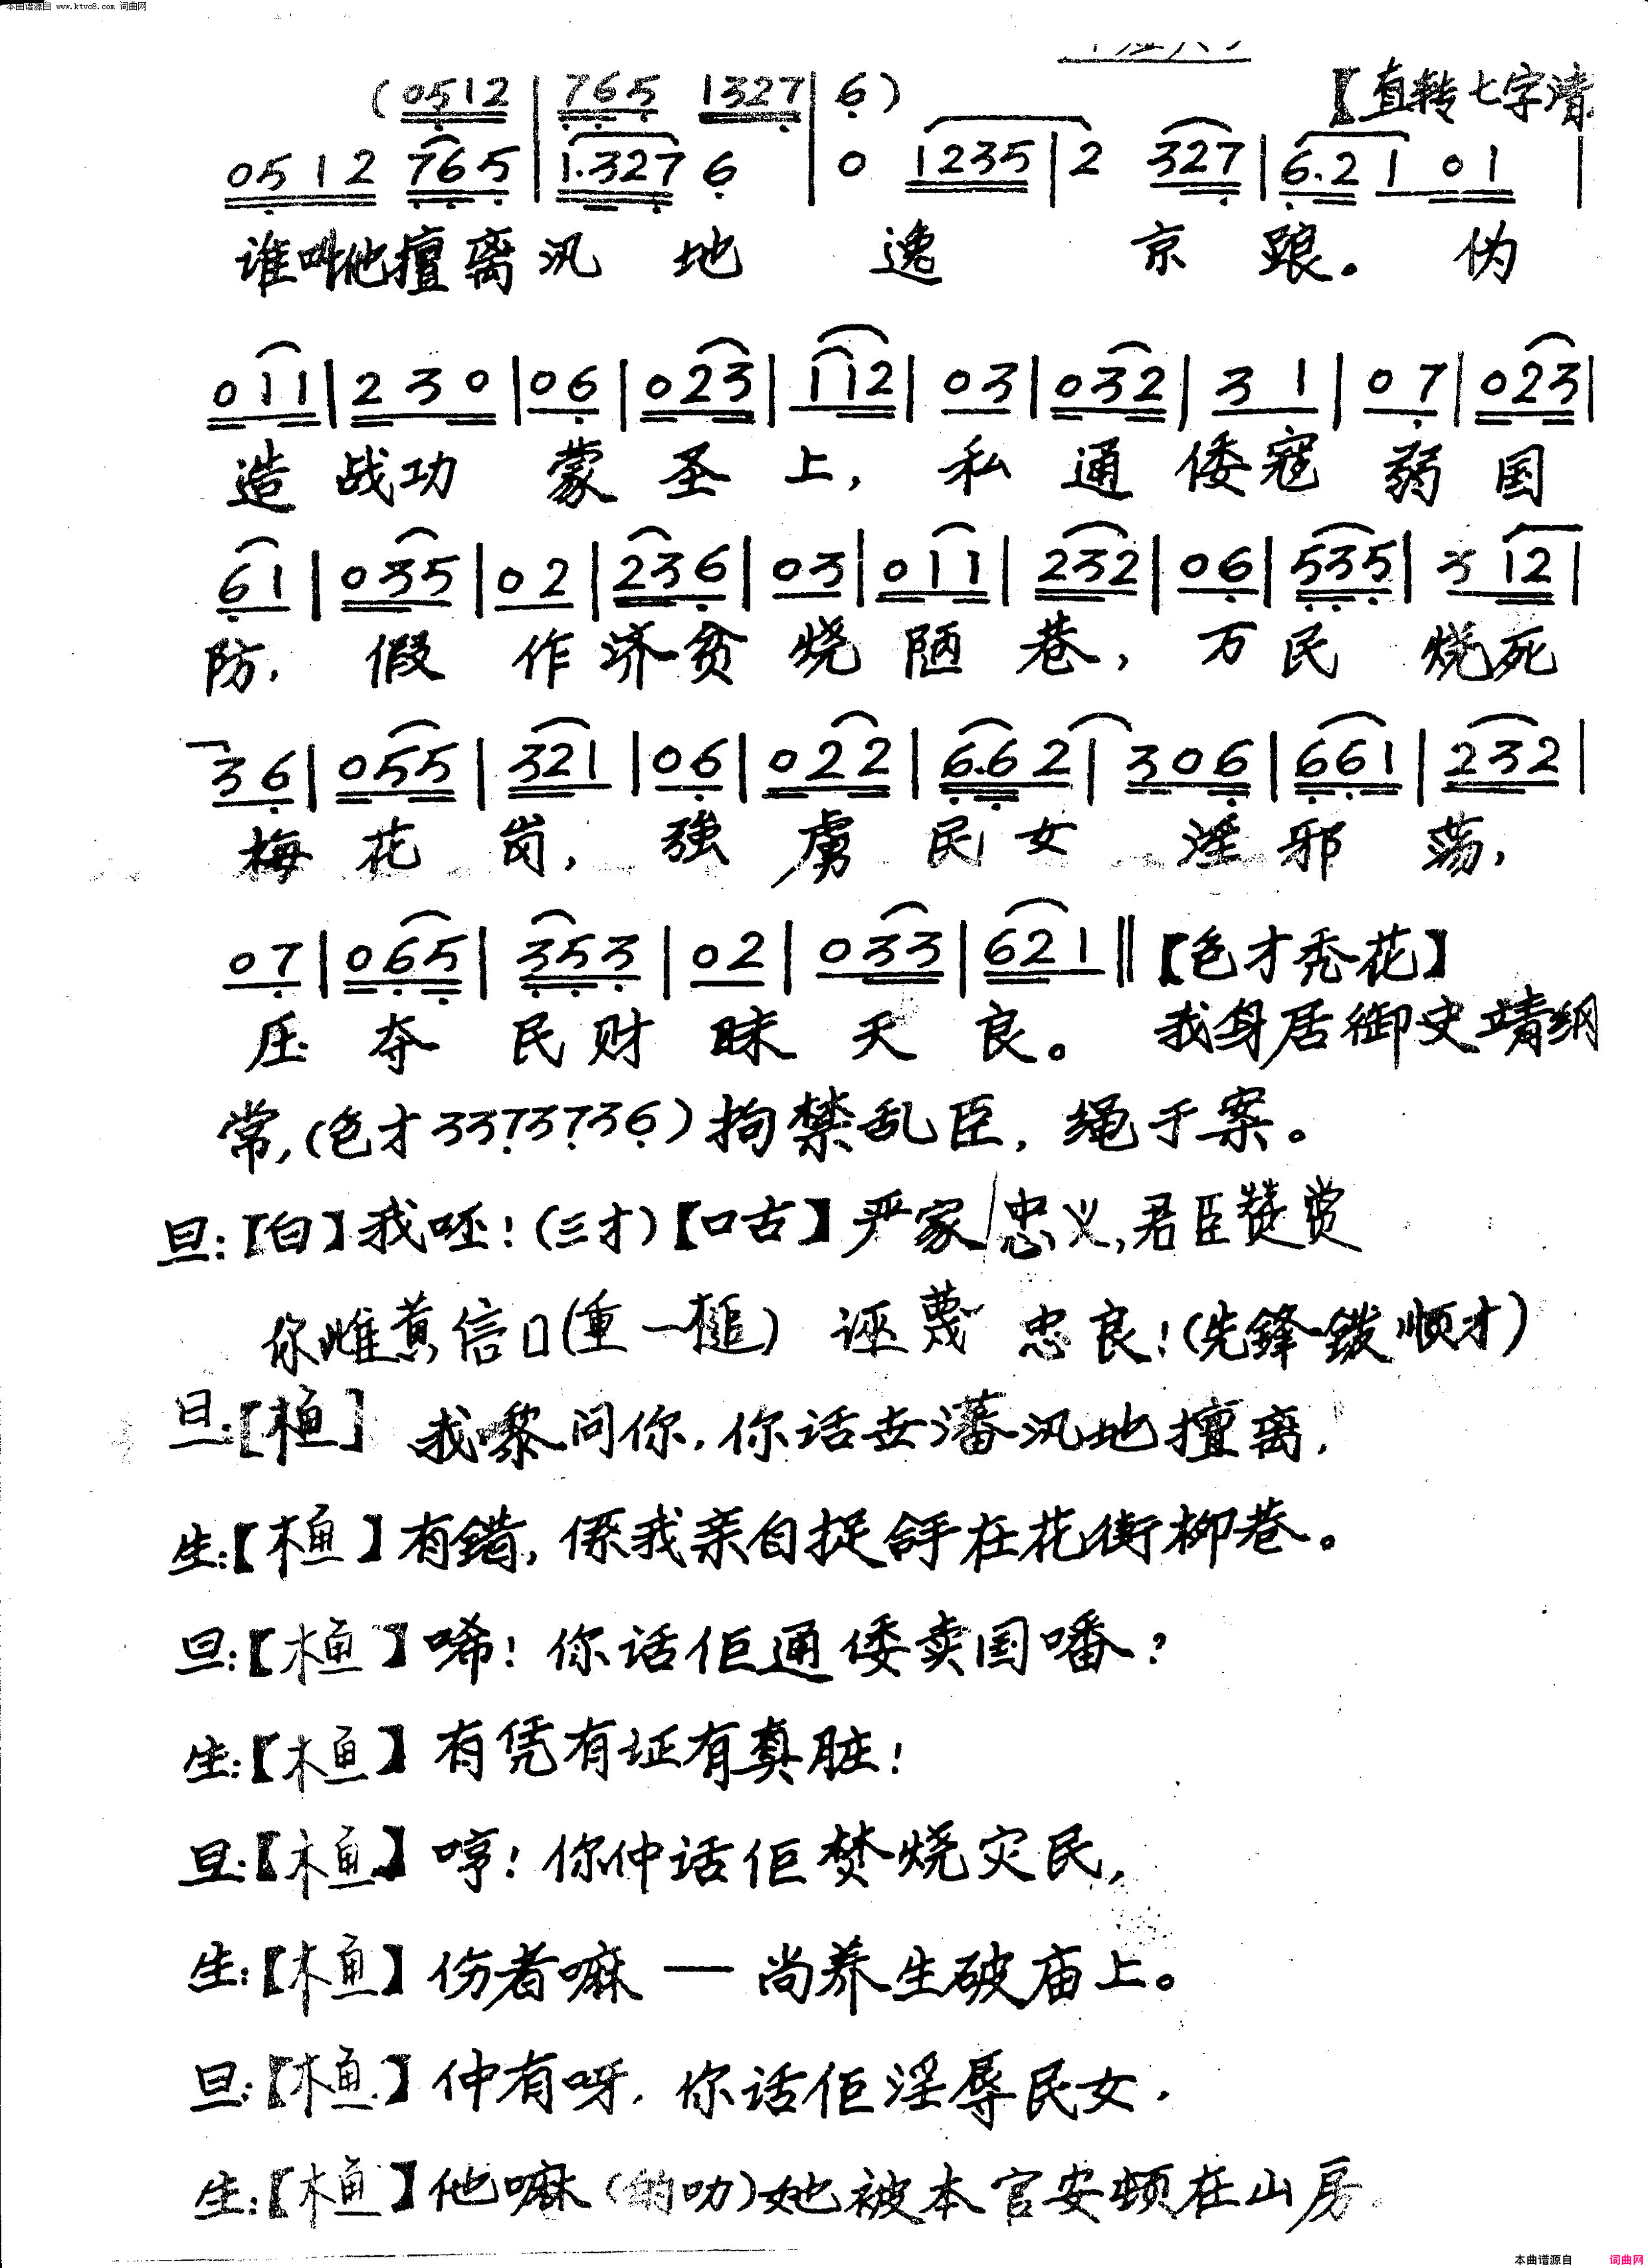 本曲谱源自 www.ktvc8.com 词曲网
(0512 | 765 1327 | 6) 【直转七字清
0512 765 | 1.327 6 | 0 1235 | 2 327 | 6.21 01 |
谁叫他擅离汛地逸京踉。伪
011 | 230 | 06 | 023 | 112 | 03 | 032 | 31 | 07 | 023 |
造战功蒙圣上，私通倭寇弱国
61 | 035 | 02 | 236 | 03 | 011 | 232 | 06 | 535 | 3 12 |
防，假作济贫烧陋巷，万民烧死
36 | 055 | 321 | 06 | 022 | 6.62 | 306 | 661 | 232 |
梅花岗，强虏民女淫邪荡，
07 | 065 | 353 | 02 | 033 | 621 ‖【色才秃花】
压夺民财昧天良。我身居御史靖纲
常，(色才3373736)拘禁乱臣，绳于案。
旦：【白】我呸！(三才)【口古】严家忠义，君臣赞赏
你雌黄信口(重一槌) 诬蔑忠良！(先锋钹顺才)
旦：[木鱼] 我嚟问你，你话世藩汛地擅离，
生：【木鱼】有错，系我亲自捉 在花街柳巷。
旦：【木鱼】唏！你话佢通倭卖国噃？
生：【木鱼】有凭有证有真脏！
旦：【木鱼】哼！你仲话佢焚烧灾民，
生：【木鱼】伤者嘛——尚养生破庙上。
旦：【木鱼】仲有呀，你话佢淫辱民女，
生：【木鱼】他嘛(的叻)她被本官安顿在山房。
本曲谱源自 词曲网